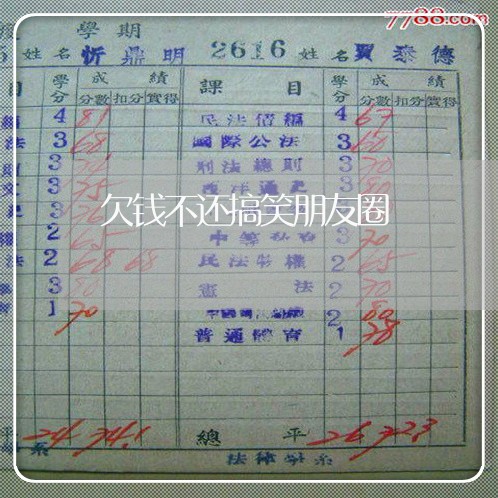 7788.com
學期
姓名 忻鼎明 2616 姓名 賈泰德
目 學分 成績 課目 學分 成績
分數 扣分 實得 分數 扣分 實得
4 81 民法債編 4 67
法 3 68 國際公法 3 60
3 刑法總則 3 70
文 3 75 西洋通史 3 80
3
欠钱不还搞笑朋友圈
權 2 65 3 70
法 2 68 68 民法物權 2 65
3 80 憲法 2 70
育 1 70 2 80
普通體育 1 78
平 24 74.1 總平 26 72.3
系 法律學系